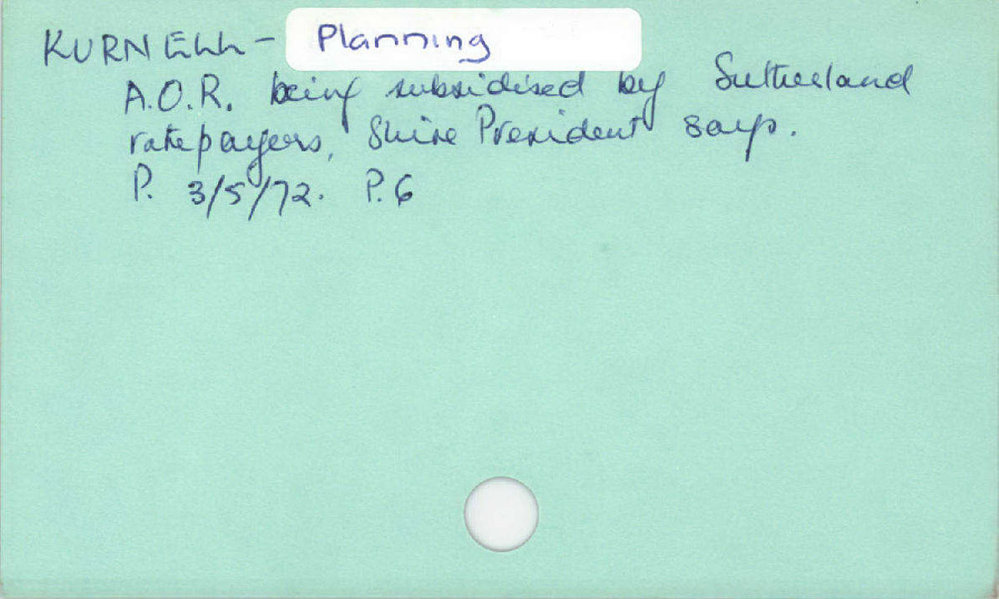 KURNELL - Planning
A.O.R. being subsidised by Sutherland
ratepayers, Shire President says.
P. 3/5/72. P.6